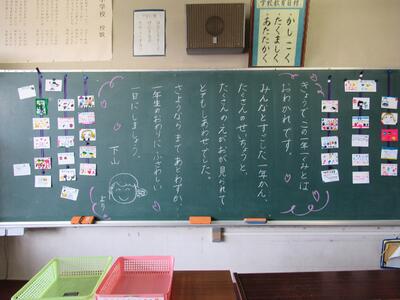 学校教育目標
かしこく
たくましく
あたたかく
学校 校歌
きょうでこの一年一くみとは
おわかれです。
みんなとすごした一年かん、
たくさんのせいちょうと、
たくさんのえがおが見られて
とてもしあわせでした。
さようならまであとわずか。
一年生のおわりにふさわしい
一日にしましょう。
下山
より